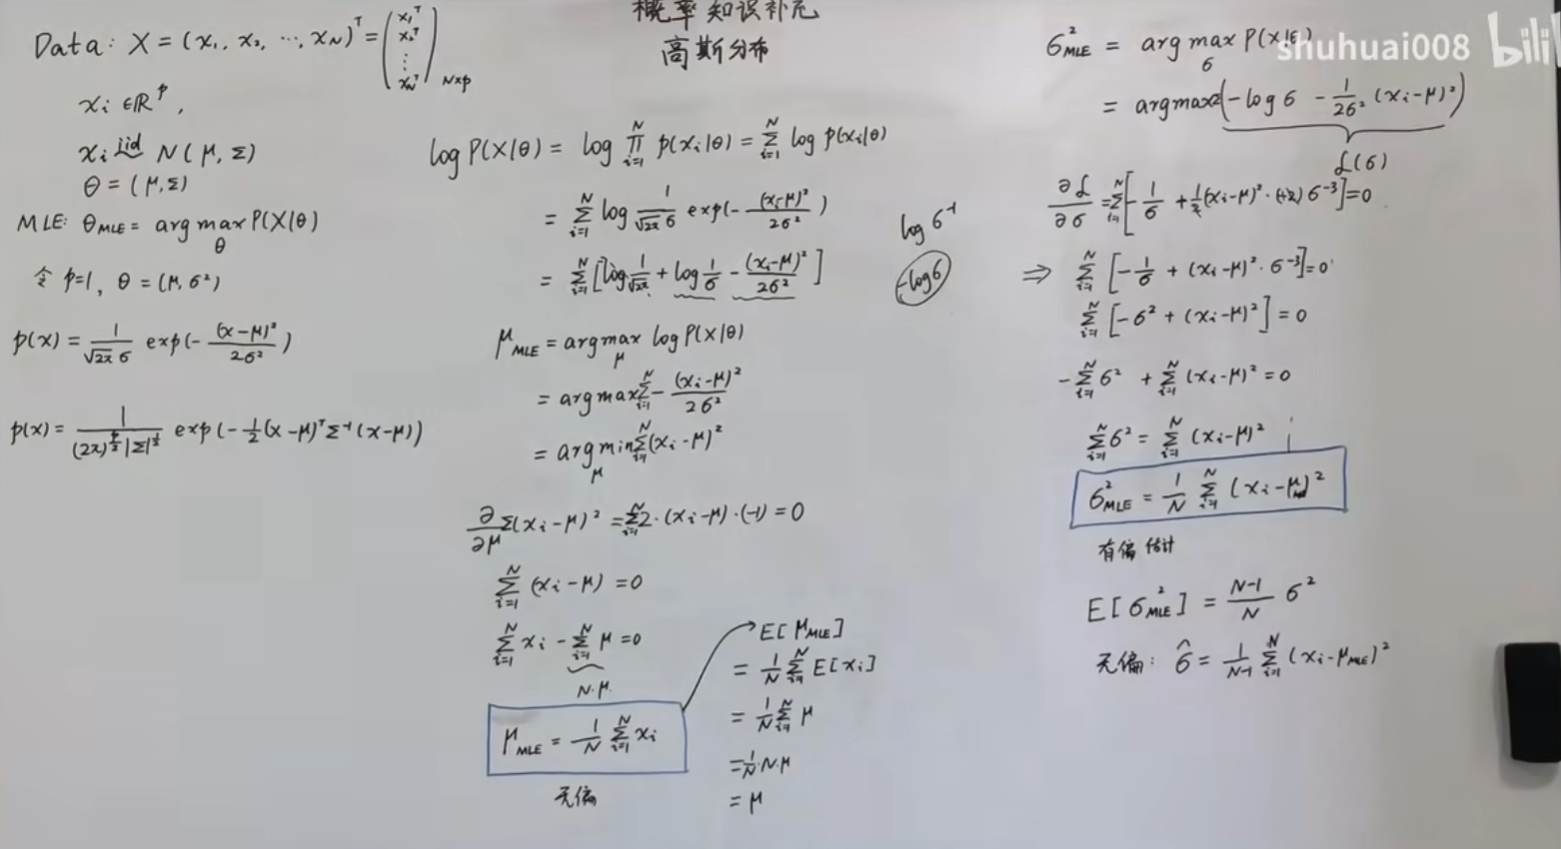 概率知识补充
高斯分布
Data: X = (x₁, x₂, ⋯, x_N)ᵀ = (x₁ᵀ x₂ᵀ ⋮ x_Nᵀ)_{N×p}
xᵢ ∈ ℝᵖ,
xᵢ iid~ N(μ, Σ)
θ = (μ, Σ)
MLE: θ_MLE = arg max_θ P(X|θ)
令 p=1, θ = (μ, σ²)
p(x) = 1/(√2π σ) exp(-(x-μ)²/2σ²)
p(x) = 1/((2π)^{p/2}|Σ|^{1/2}) exp(-1/2(x-μ)ᵀΣ⁻¹(x-μ))
log P(X|θ) = log ∏_{i=1}^N p(xᵢ|θ) = Σ_{i=1}^N log p(xᵢ|θ)
= Σ_{i=1}^N log 1/(√2π σ) exp(-(xᵢ-μ)²/2σ²)
= Σ_{i=1}^N [log 1/√2π + log 1/σ - (xᵢ-μ)²/2σ²]
log σ⁻¹
-log σ
μ_MLE = arg max_μ log P(X|θ)
= arg max Σ_{i=1}^N -(xᵢ-μ)²/2σ²
= arg min_μ Σ_{i=1}^N (xᵢ-μ)²
∂/∂μ Σ(xᵢ-μ)² = Σ_{i=1}^N 2·(xᵢ-μ)·(-1) = 0
Σ_{i=1}^N (xᵢ-μ) = 0
Σ_{i=1}^N xᵢ - Σ_{i=1}^N μ = 0
N·μ
μ_MLE = 1/N Σ_{i=1}^N xᵢ
无偏
E[μ_MLE]
= 1/N Σ_{i=1}^N E[xᵢ]
= 1/N Σ_{i=1}^N μ
= 1/N·N·μ
= μ
σ²_MLE = arg max_σ P(X|
shuhuai008 bili
= arg max Σ(-log σ - 1/2σ² (xᵢ-μ)²)
ℒ(σ)
∂ℒ/∂σ = Σ_{i=1}^N [-1/σ + 1/2(xᵢ-μ)²·(+2)σ⁻³] = 0
⇒ Σ_{i=1}^N [-1/σ + (xᵢ-μ)²·σ⁻³] = 0
Σ_{i=1}^N [-σ² + (xᵢ-μ)²] = 0
-Σ_{i=1}^N σ² + Σ_{i=1}^N (xᵢ-μ)² = 0
Σ_{i=1}^N σ² = Σ_{i=1}^N (xᵢ-μ)²
σ²_MLE = 1/N Σ_{i=1}^N (xᵢ-μ_MLE)²
有偏估计
E[σ²_MLE] = N-1/N σ²
无偏: σ̂ = 1/N-1 Σ_{i=1}^N (xᵢ-μ_MLE)²